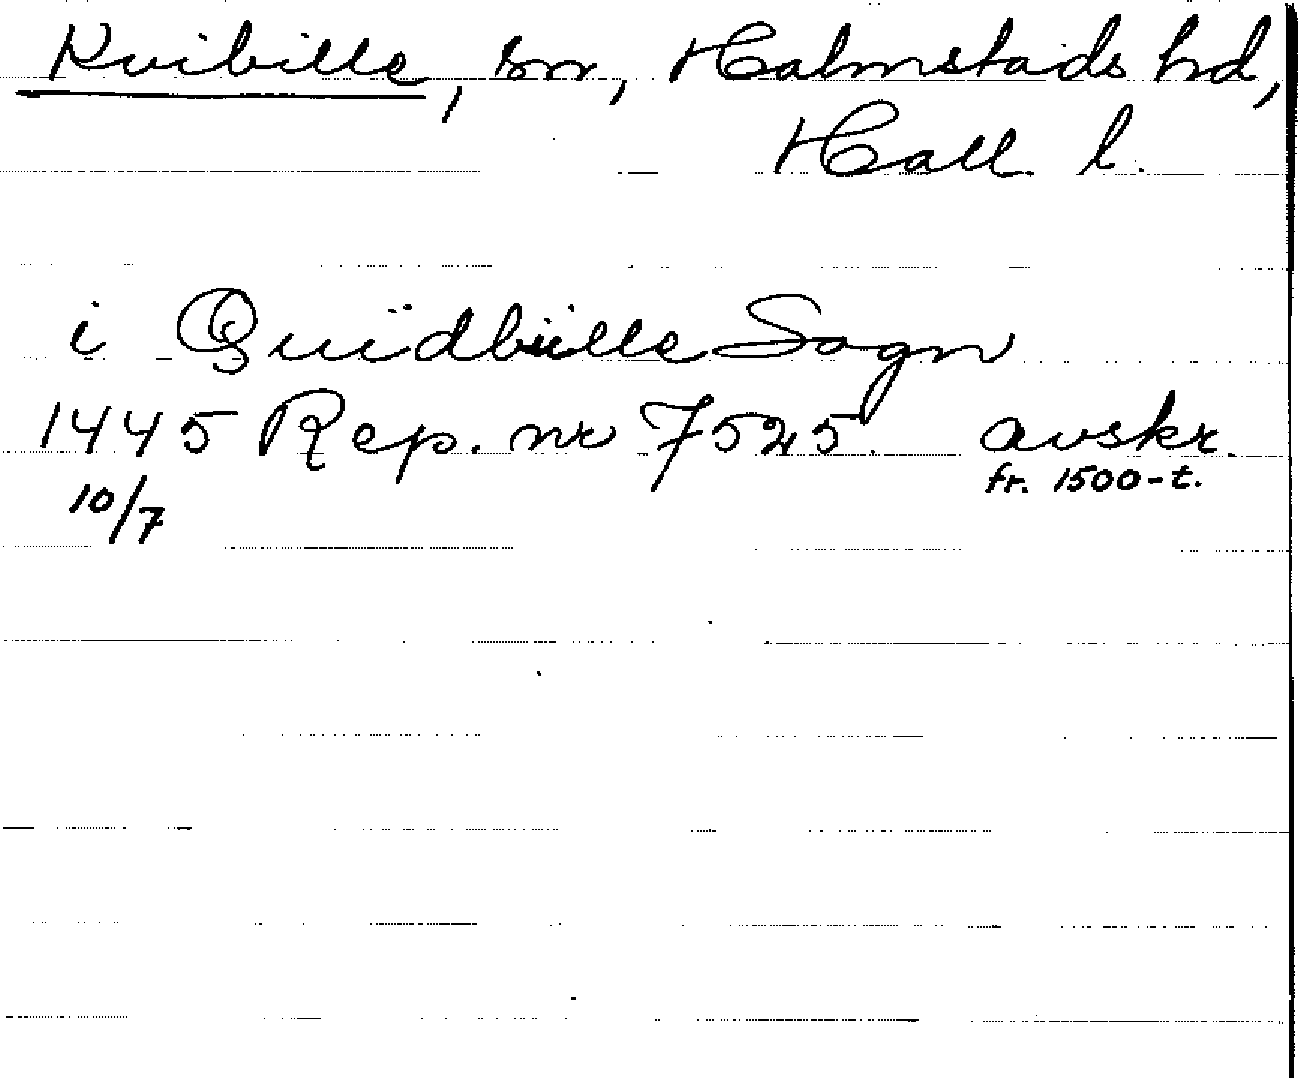 Kvibille, sn, Halmstads hd,
Hall l.
i Quïdbÿlle Sogn
1445 Rep. nr 7525. avskr.
fr. 1500-t.
10/7